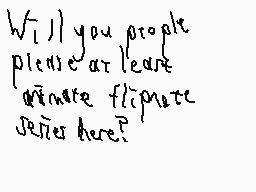 Will you people
please at least
animate flipnote
series here?